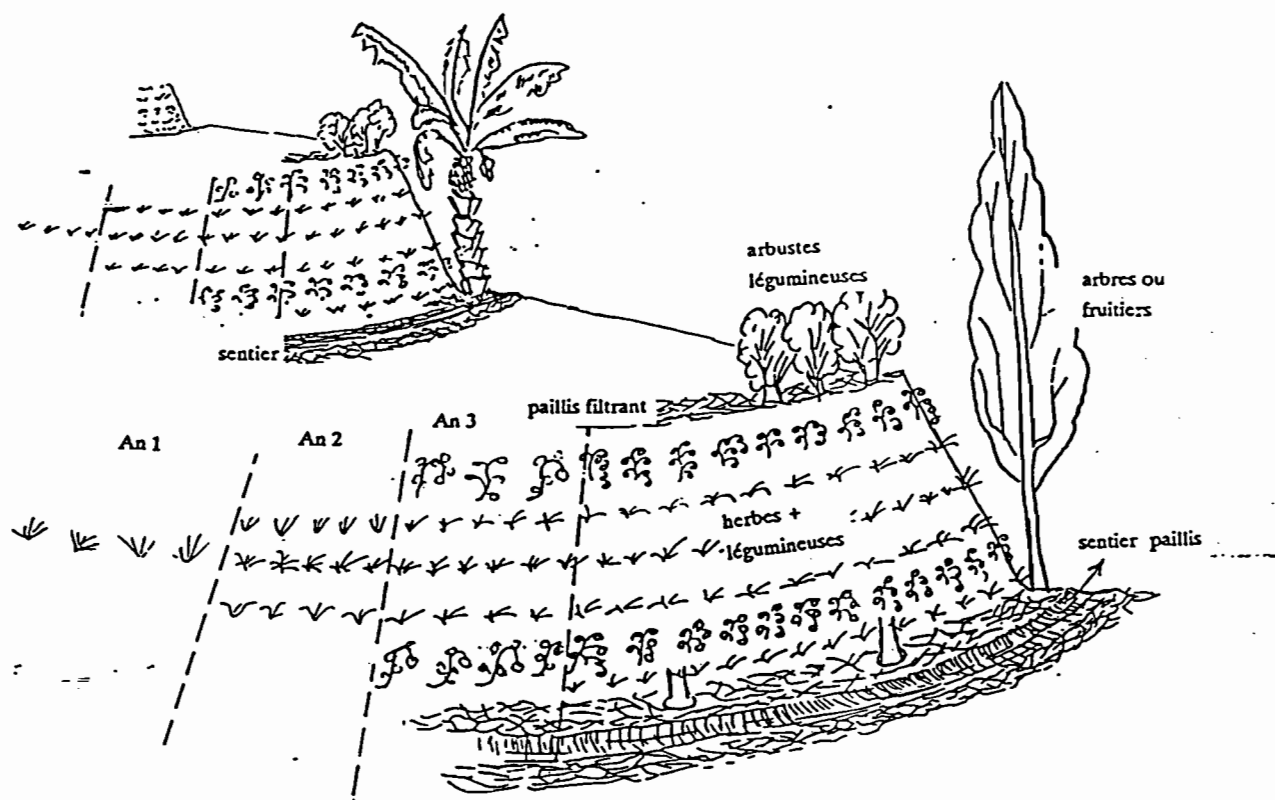 arbustes
légumineuses
arbres ou
fruitiers
sentier
paillis filtrant
An 1
An 2
An 3
herbes +
légumineuses
sentier paillis